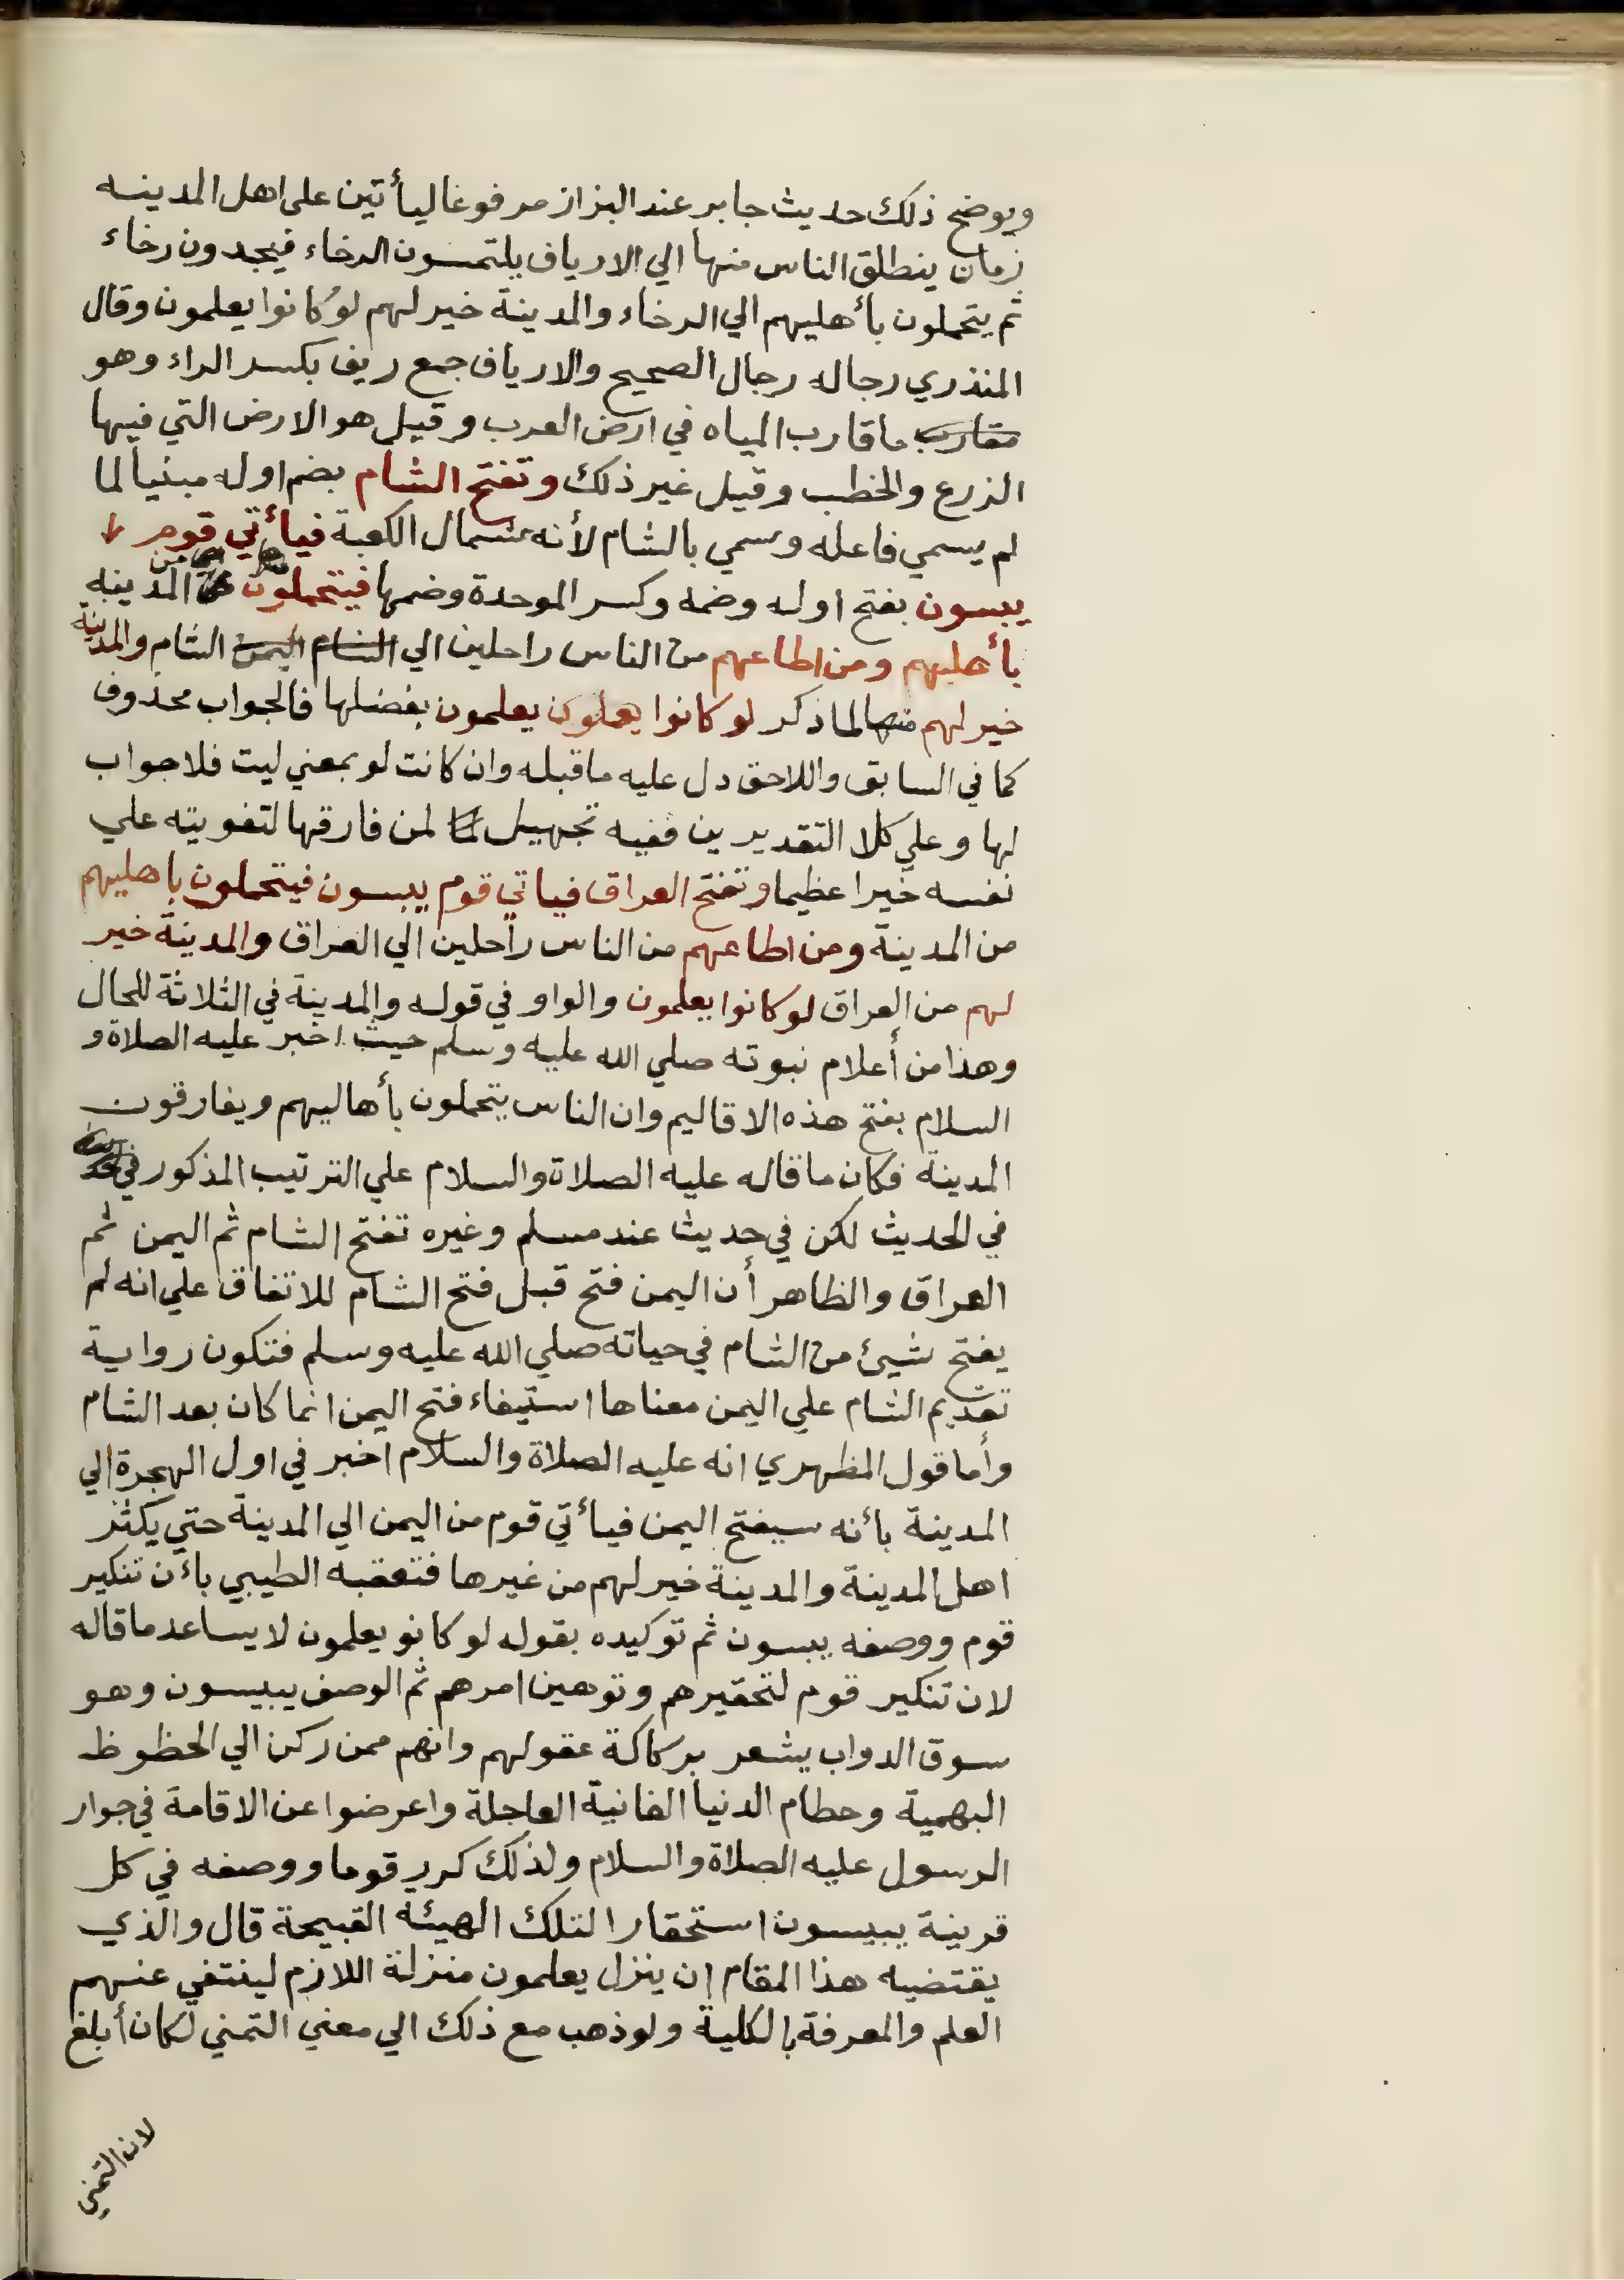 ويوضح ذلك حديث جابر عند البزاز مرفوعا ليأتين علي اهل المدينه
زمان ينطلق الناس منها الي الارياف يلتمسون الرخاء فيجدون رخاء
ثم يتحملون بأهليهم الي الرخاء والمدينة خير لهم لو كانوا يعلمون وقال
المنذري رجاله رجال الصحيح والارياف جمع ريف بكسر الراء وهو
مقارب ما قارب المياه في ارض العرب وقيل هو الارض التي فيها
الزرع والخطب وقيل غير ذلك وتفتح الشام بضم اوله مبنيا لما
لم يسمي فاعله وسمي بالشام لأنه شمال الكعبة فيأتي قوم
يبسون بفتح اوله وضمه وكسر الموحدة وضمها فيتحملون من المدينه
بأهليهم ومن اطاعهم من الناس راحلين الي الشام اليمن الشام والمدينة
خير لهم منها لما ذكر لو كانوا يعملون يعلمون بفضلها فالجواب محذوف
كما في السابق واللاحق دل عليه ما قبله وان كانت لو بمعني ليت فلا جواب
لها وعلي كلا التقديرين ففيه تجهيل لما لمن فارقها لتفويته علي
نفسه خيرا عظيما وتفتح العراق فياتي قوم يبسون فيتحملون باهليهم
من المدينة ومن اطاعهم من الناس راحلين الي العراق والمدينة خير
لهم من العراق لو كانوا يعلمون والواو في قوله والمدينة في الثلاثة للحال
وهذا من أعلام نبوته صلي الله عليه وسلم حيث اخبر عليه الصلاة و
السلام بفتح هذه الاقاليم وان الناس يتحملون بأهاليهم ويفارقون
المدينة فكان ما قاله عليه الصلاة والسلام علي الترتيب المذكور في
في الحديث لكن في حديث عند مسلم وغيره تفتح الشام ثم اليمن ثم
العراق والظاهر أن اليمن فتح قبل فتح الشام للاتفاق علي انه لم
يفتح شيئ من الشام في حياته صلي الله عليه وسلم فتكون رواية
تقديم الشام علي اليمن معناها استيفاء فتح اليمن انما كان بعد الشام
وأما قول المظهري انه عليه الصلاة والسلام اخبر في اول الهجرة الي
المدينة بأنه سيفتح اليمن فيأتي قوم من اليمن الي المدينة حتي يكثر
اهل المدينة والمدينة خير لهم من غيرها فتعقبه الطيبي بأن تنكير
قوم ووصفه يبسون ثم توكيده بقوله لو كانو يعلمون لا يساعد ما قاله
لان تنكير قوم لتحقيرهم وتوهين امرهم ثم الوصف يبيسون وهو
سوق الدواب يشعر بركاكة عقولهم وانهم ممن ركن الي الحظوظ
البهمية وحطام الدنيا الفانية العاجلة واعرضوا عن الاقامة في جوار
الرسول عليه الصلاة والسلام ولذلك كرر قوما ووصفه في كل
قرينة يبيسون استحقارا لتلك الهيئه القبيحة قال والذي
يقتضيه هذا المقام ان ينزل يعلمون منزلة اللازم لينتفي عنهم
العلم والمعرفة بالكلية ولو ذهب مع ذلك الي معني التمني لكان أبلغ
لان التمني